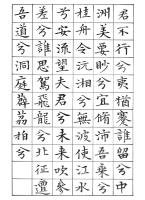 君不行兮夷猶蹇誰留兮中
洲美要眇兮宜修沛吾乘兮
桂舟令沅湘兮無波使江水
兮安流望夫君兮未來吹參
差兮誰思駕飛龍兮北征邅
吾道兮洞庭薜荔柏兮